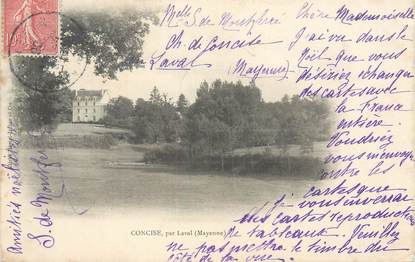 Melle S. de Montfrée
Ch. de Concise
Laval
(Mayenne)
Chère Mademoiselle
J'ai vu dans le
que vous
désiriez échanger
des cartes avec la
la France
entière.
Voudriez
vous m'envoyer
contre les
cartes que
je vous enverrai
des cartes reproductions
de tableaux. Veuillez
ne pas mettre le timbre du
côté de la vue
Amitiés
S. de Montf
CONCISE, par Laval (Mayenne)